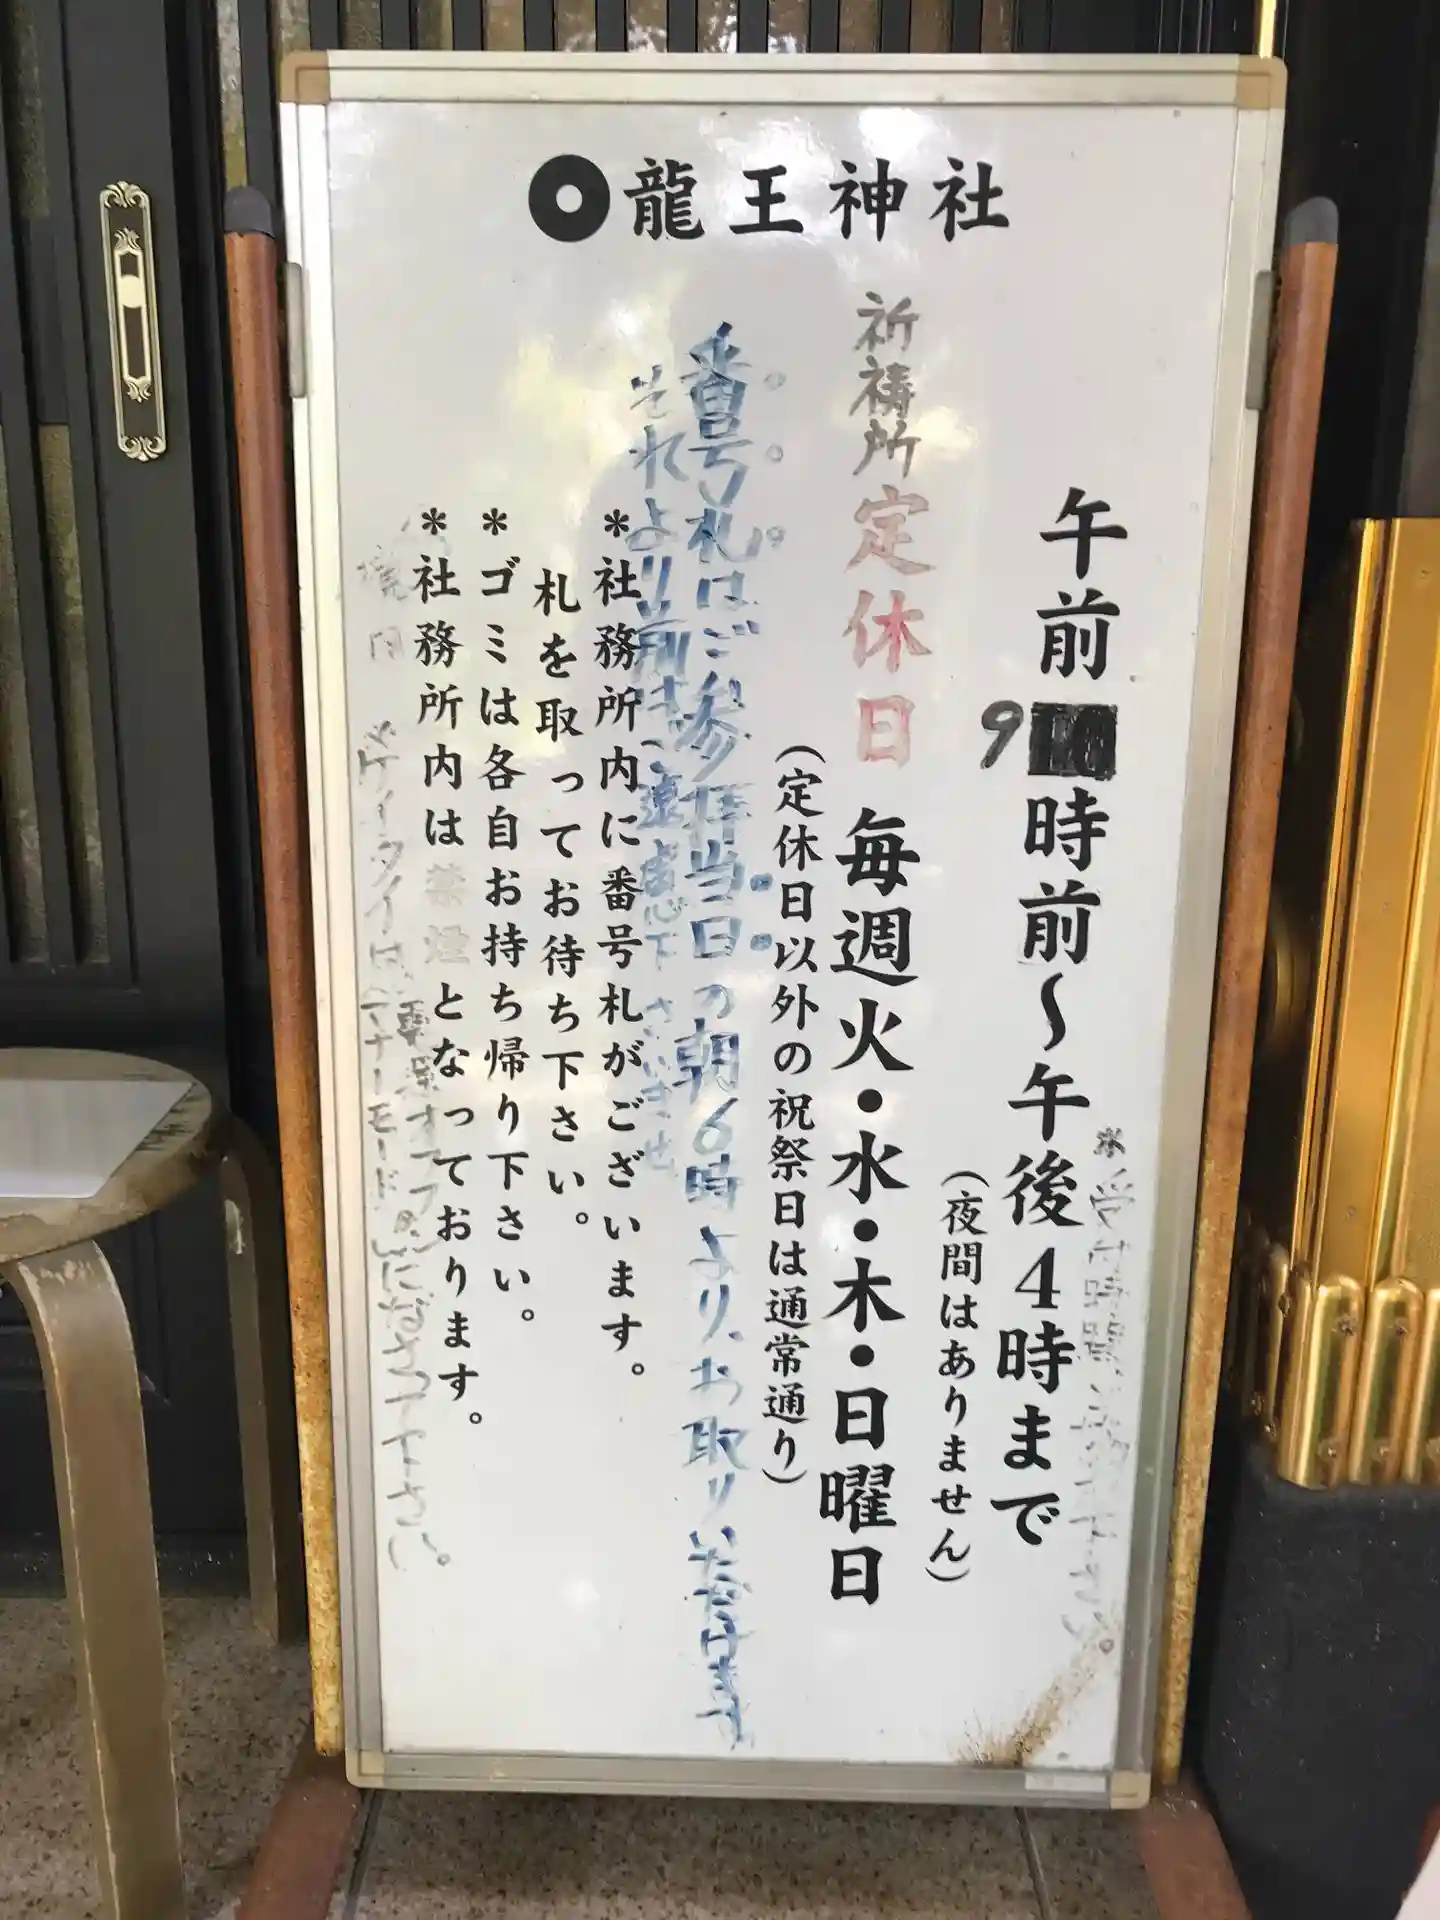 龍王神社
午前9時前〜午後4時まで
(夜間はありません)
*受付時間 下さい。
祈祷所定休日 毎週火・水・木・日曜日
(定休日以外の祝祭日は通常通り)
番号札はご参拝当日の朝6時より、お取りいただけます
それより前はご遠慮下さいませ
*社務所内に番号札がございます。
札を取ってお待ち下さい。
*ゴミは各自お持ち帰り下さい。
*社務所内は禁煙となっております。
ケイタイは電源オフ マナーモードになさって下さい。